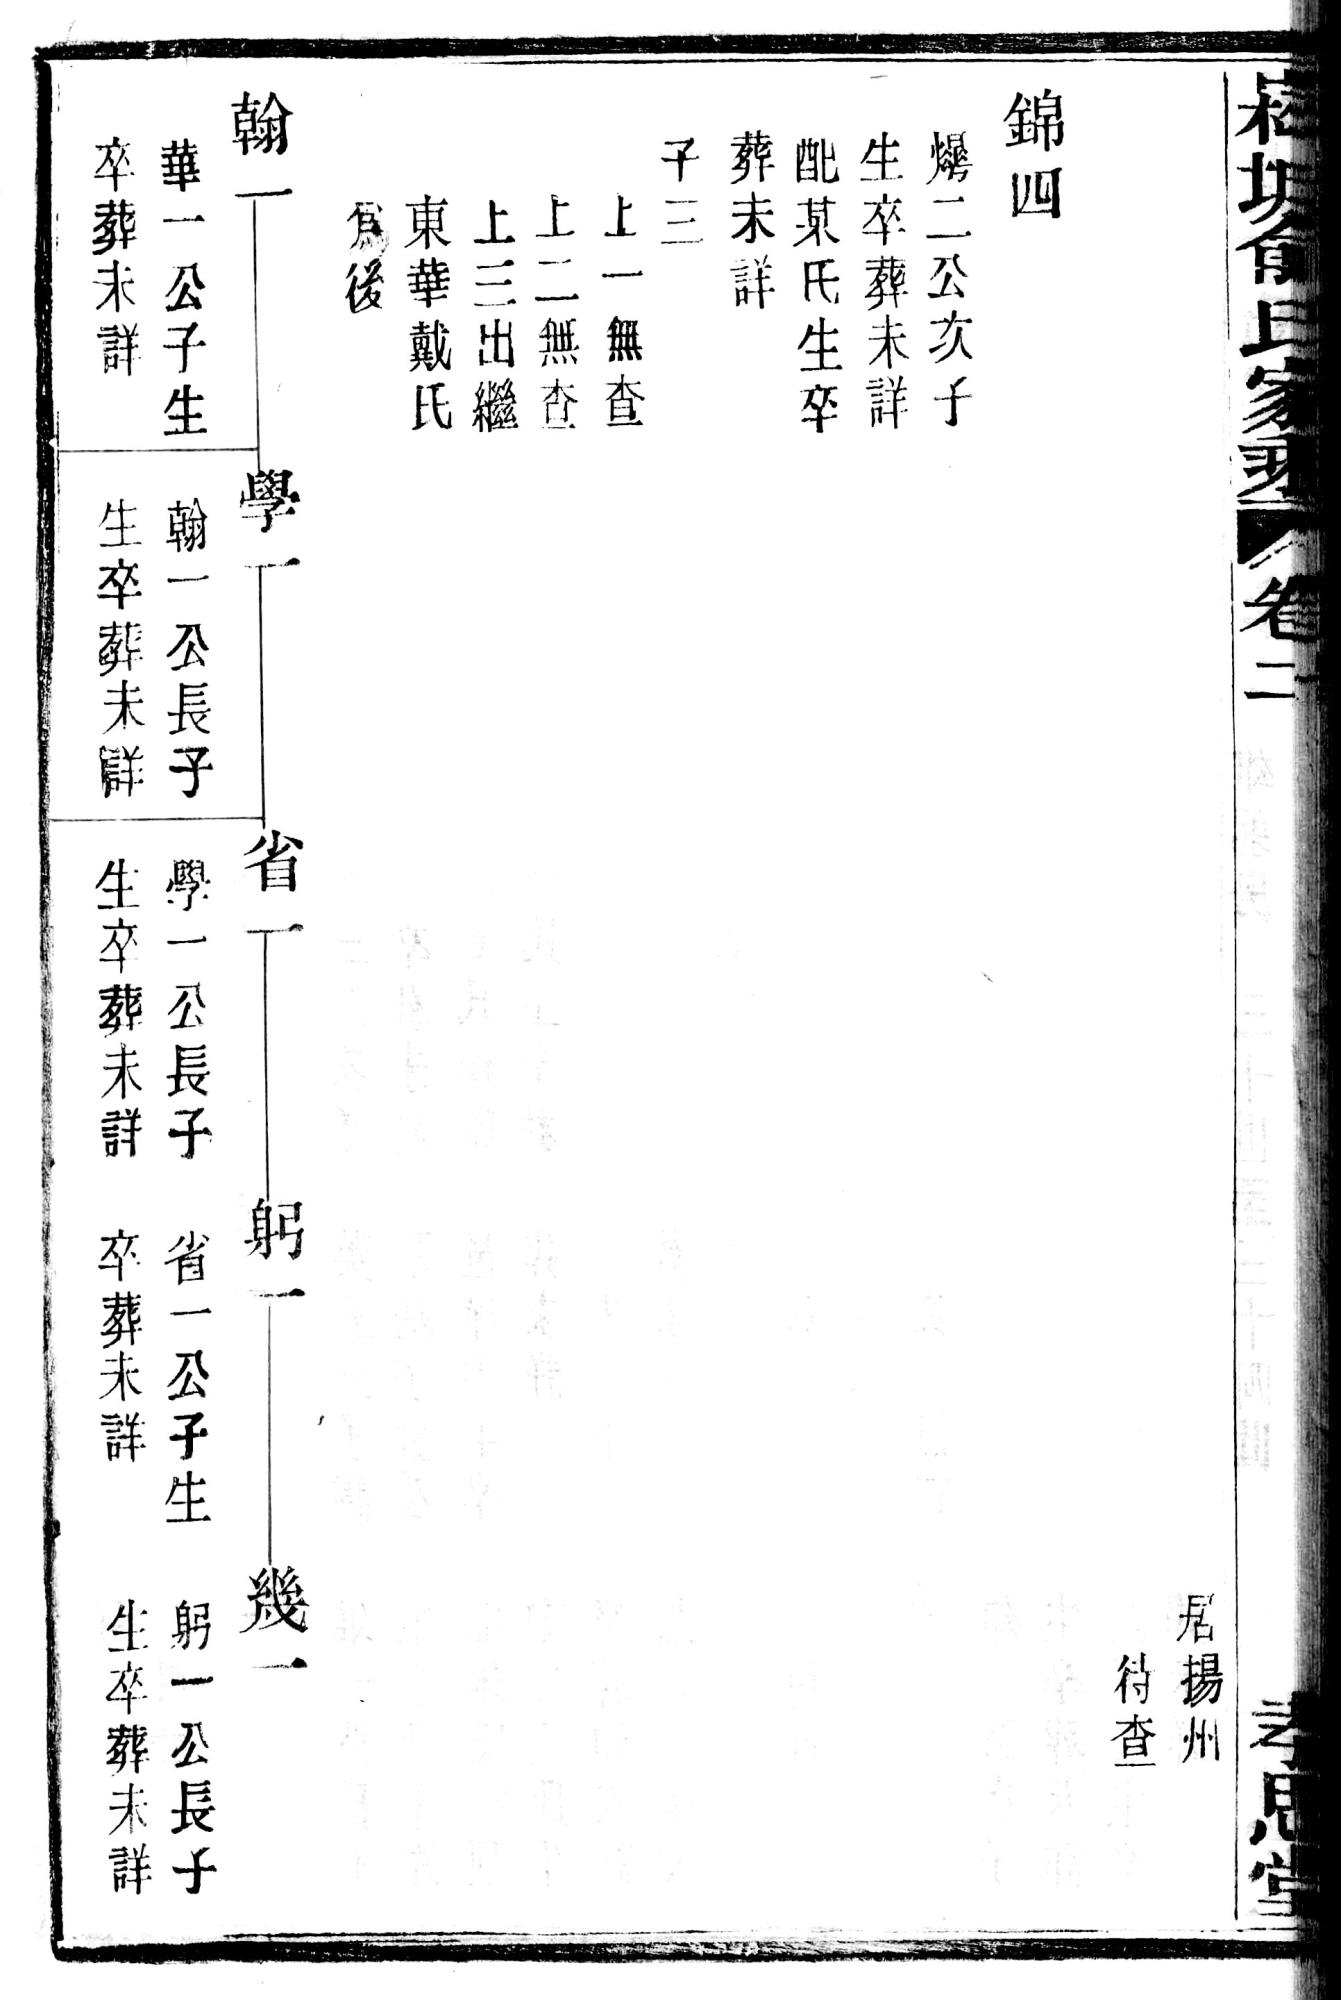 俞氏家乘
卷二
思堂
居揚州
待查
錦四
二公次子
生卒葬未詳
配某氏生卒
葬未詳
子三
上一無查
上二無查
上三出繼
東華戴氏
為後
翰一
華一公子生
卒葬未詳
學一
翰一公長子
生卒葬未詳
省一
學一公長子
生卒葬未詳
躬一
省一公子生
卒葬未詳
幾一
躬一公長子
生卒葬未詳